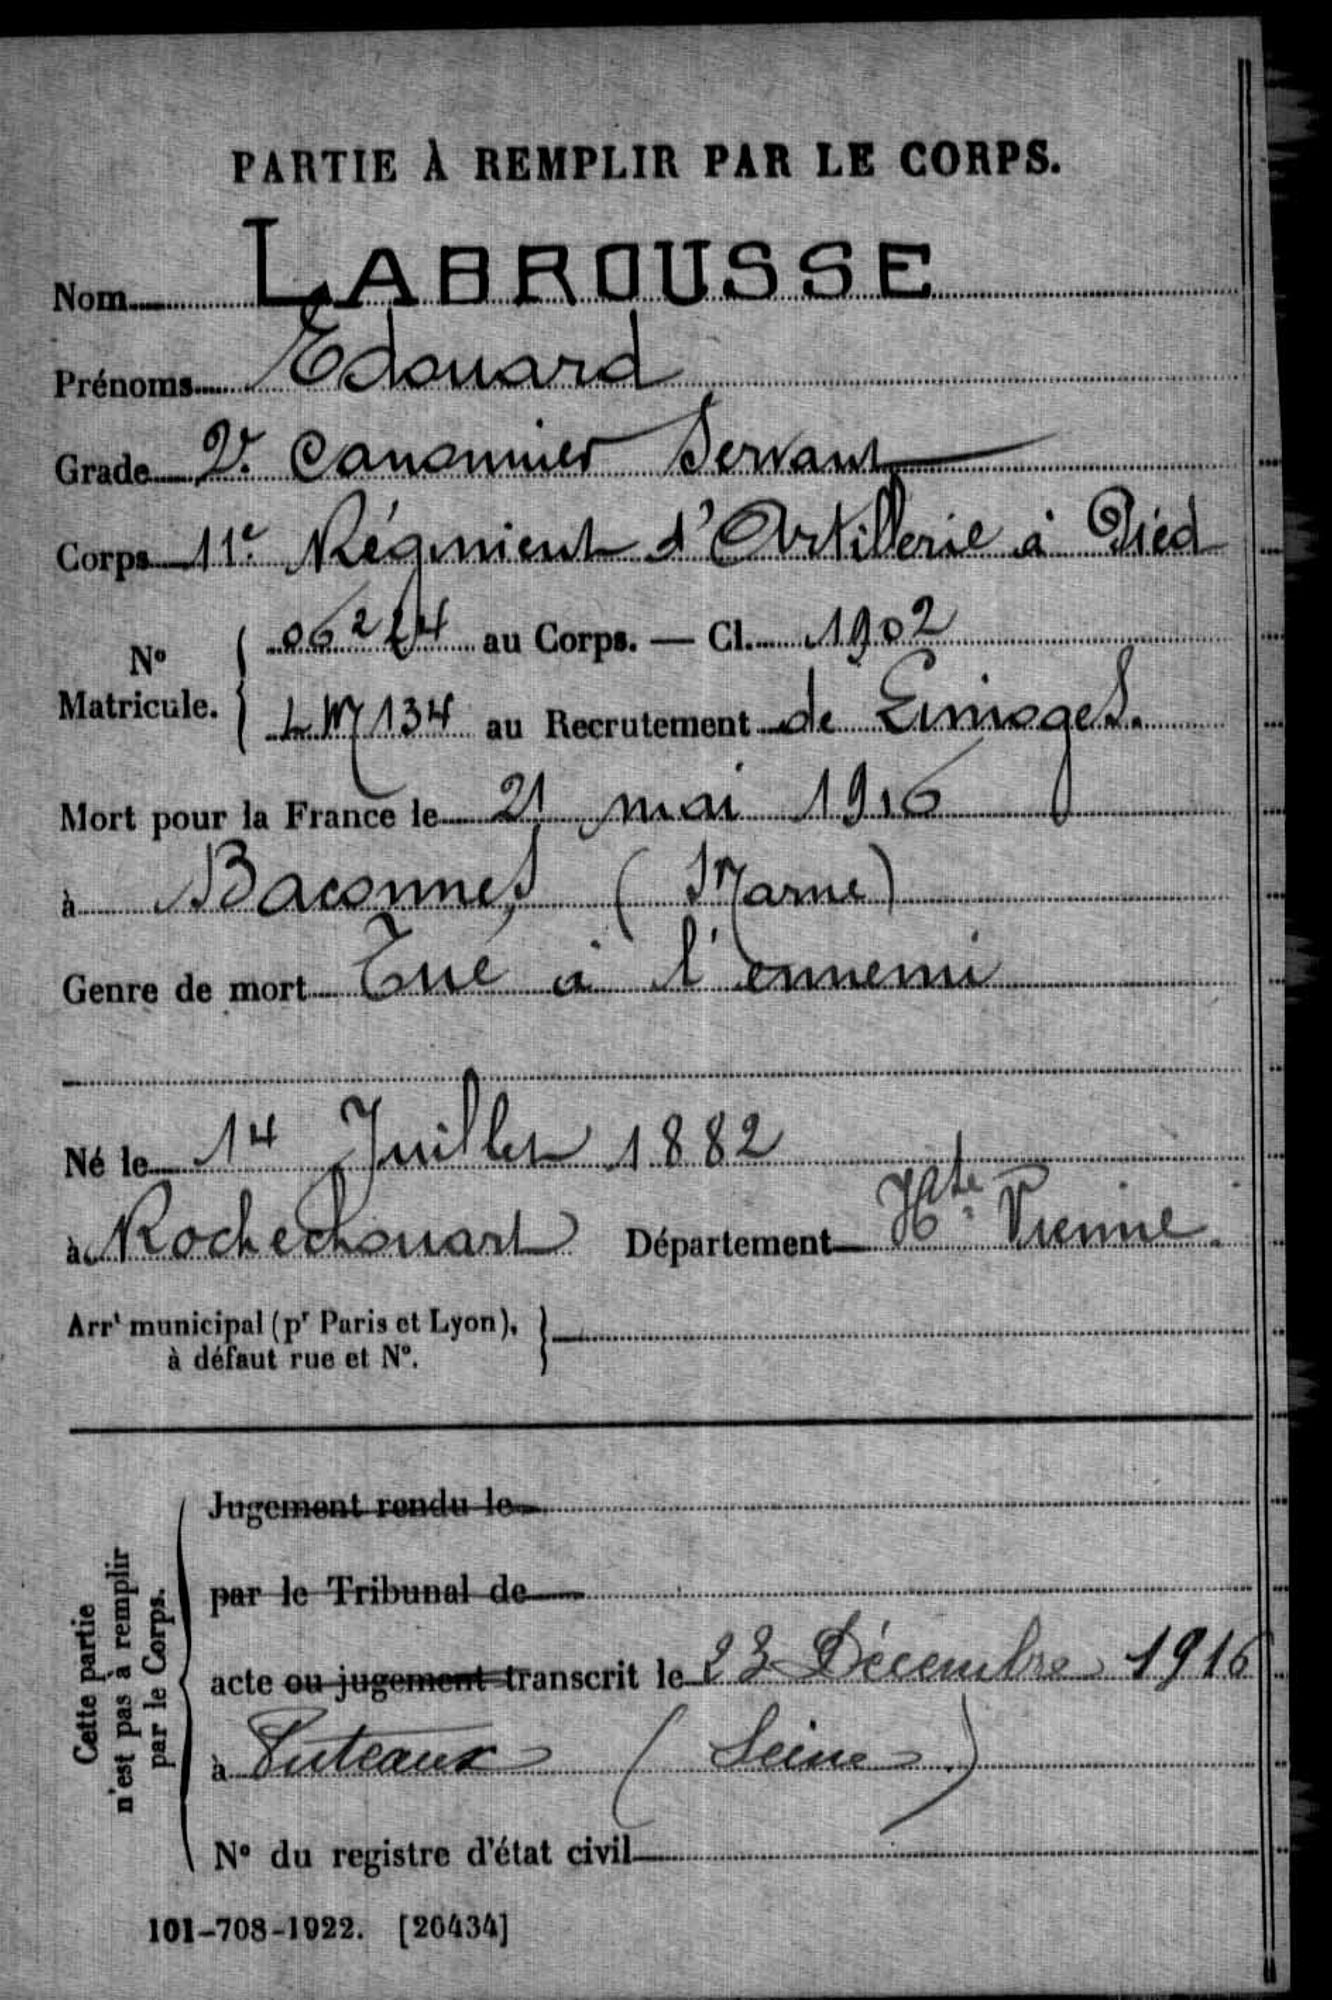 PARTIE À REMPLIR PAR LE CORPS.
Nom LABROUSSE
Prénoms Edouard
Grade 2e Canonnier Servant
Corps 11e Régiment d'Artillerie à Pied
N° Matricule. { 06224 au Corps. — Cl. 1902
LM 134 au Recrutement de Limoges.
Mort pour la France le 21 mai 1916
à Baconnes (Marne)
Genre de mort Tué à l'ennemi
Né le 14 Juillet 1882
à Rochechouart Département Hte Vienne.
Arrt municipal (pr Paris et Lyon), }
à défaut rue et N°.
Cette partie
n'est pas à remplir
par le Corps.
Jugement rendu le
par le Tribunal de
acte ou jugement transcrit le 23 Décembre 1916
à Puteaux (Seine)
N° du registre d'état civil
101-708-1922. [26434]